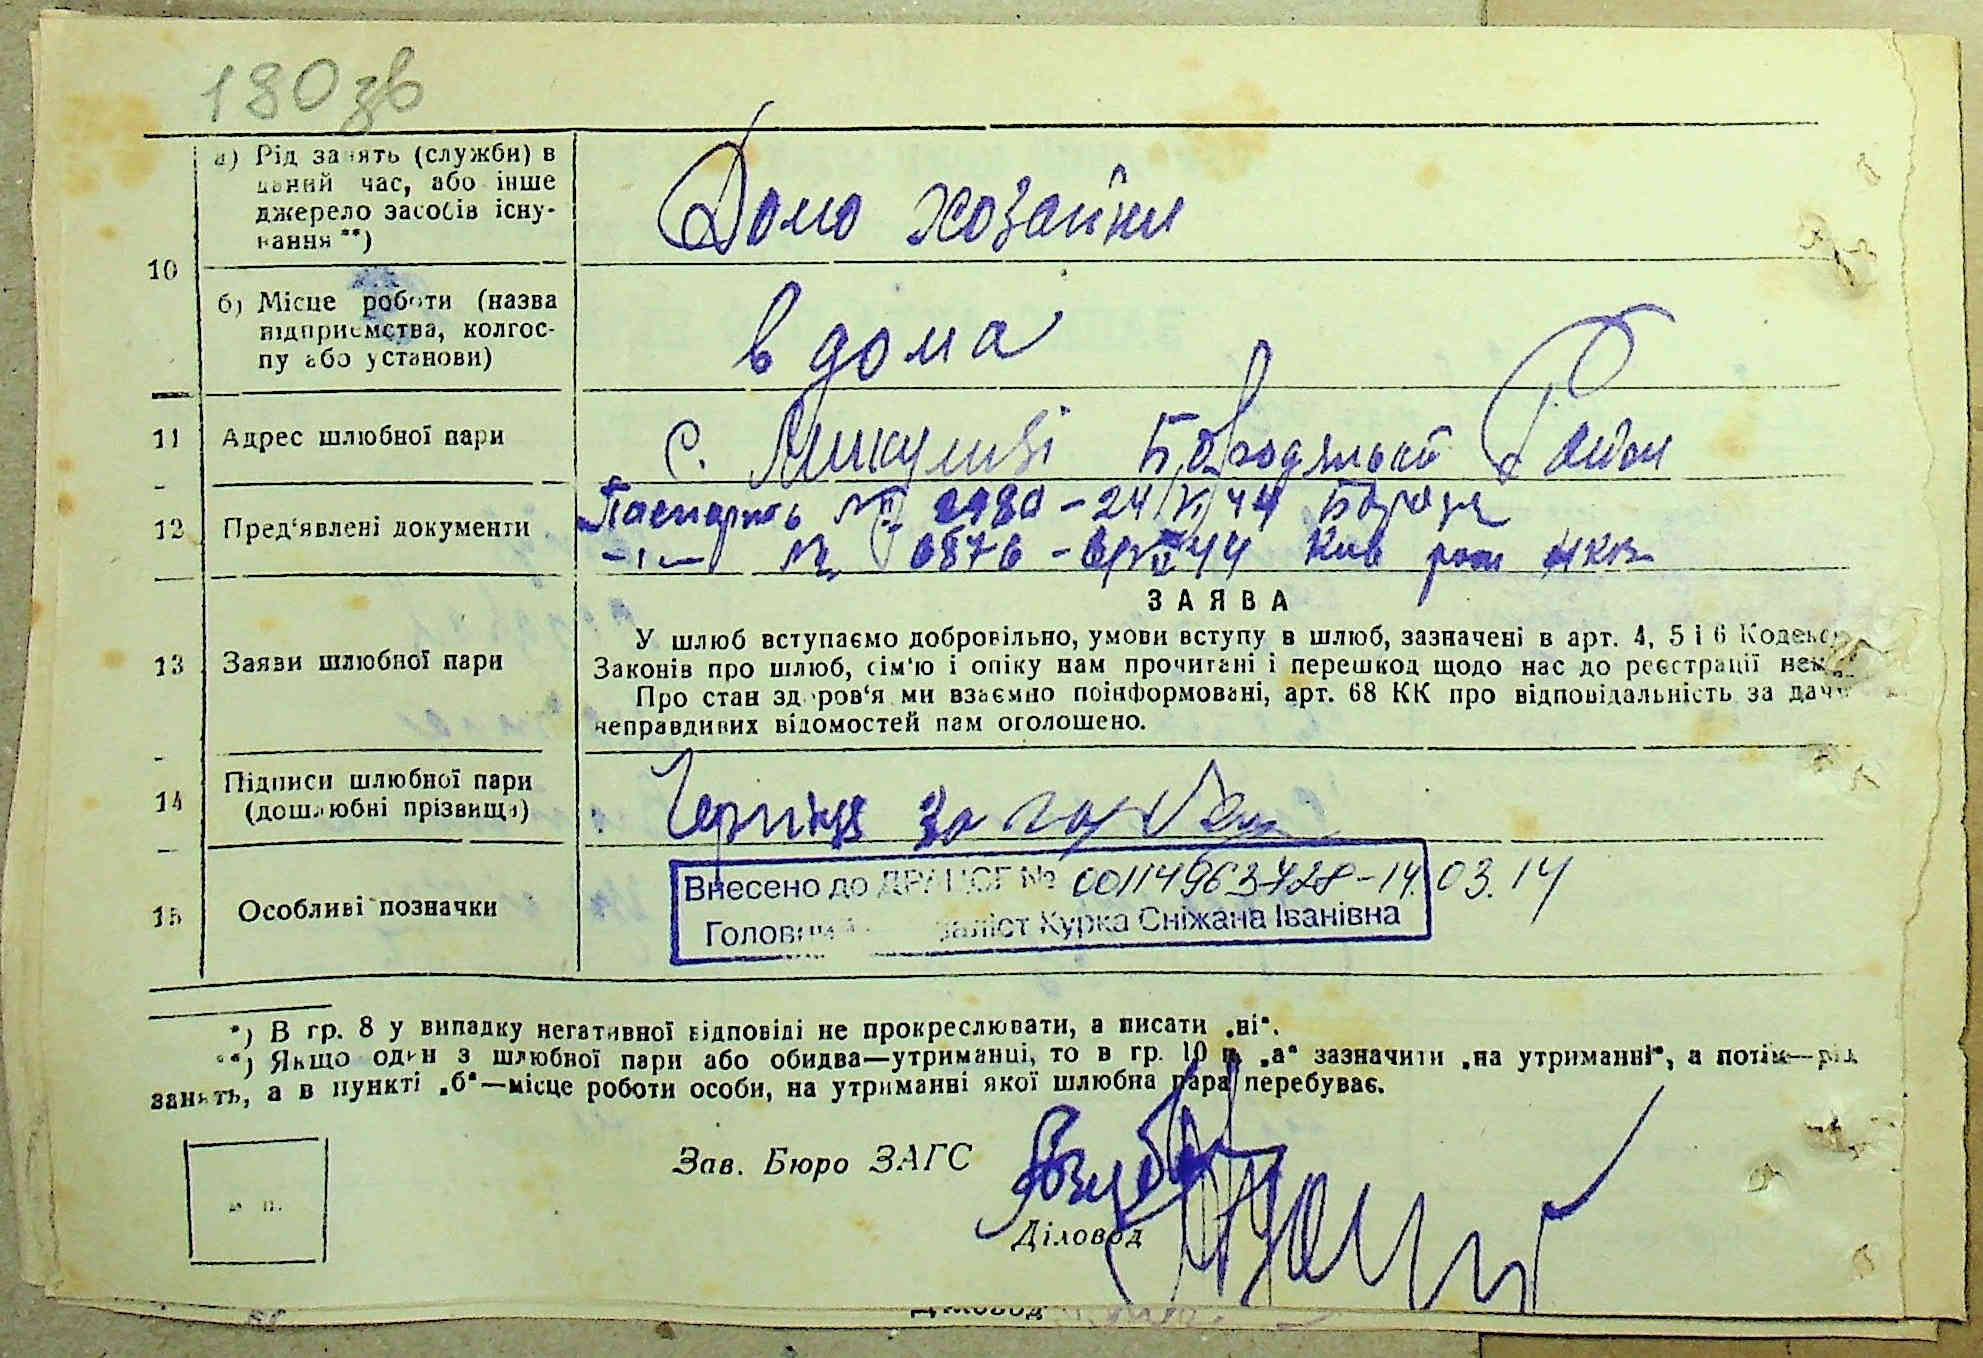 180зв
а) Рід занять (служби) в
даний час, або інше
джерело засобів існу-
вання **)
Домо хозайки
10
б) Місце роботи (назва
підприємства, колгос-
пу або установи)
в дома
11 Адрес шлюбної пари
с. Микуличі Бородянский Район
12 Пред'явлені документи
Паспорть № 2980 - 24/VI 44 Бородя
-"- № 6876 - 44 Кив рай НКВ
ЗАЯВА
13 Заяви шлюбної пари
У шлюб вступаємо добровільно, умови вступу в шлюб, зазначені в арт. 4, 5 і 6 Кодексу
Законів про шлюб, сім'ю і опіку нам прочитані і перешкод щодо нас до реєстрації нема
Про стан здоров'я ми взаємно поінформовані, арт. 68 КК про відповідальність за дачу
неправдивих відомостей нам оголошено.
14 Підписи шлюбної пари
(дошлюбні прізвища)
15 Особливі позначки
Внесено до ДРАЦСГ № 00114963728-14.03.14
Головний спеціаліст Курка Сніжана Іванівна
*) В гр. 8 у випадку негативної відповіді не прокреслювати, а писати „ні“.
**) Якщо один з шлюбної пари або обидва—утриманці, то в гр. 10 п. „а“ зазначити „на утриманні“, а потім—рід
занять, а в пункті „б“—місце роботи особи, на утриманні якої шлюбна пара перебуває.
Зав. Бюро ЗАГС
Діловод
м. п.
Діловод